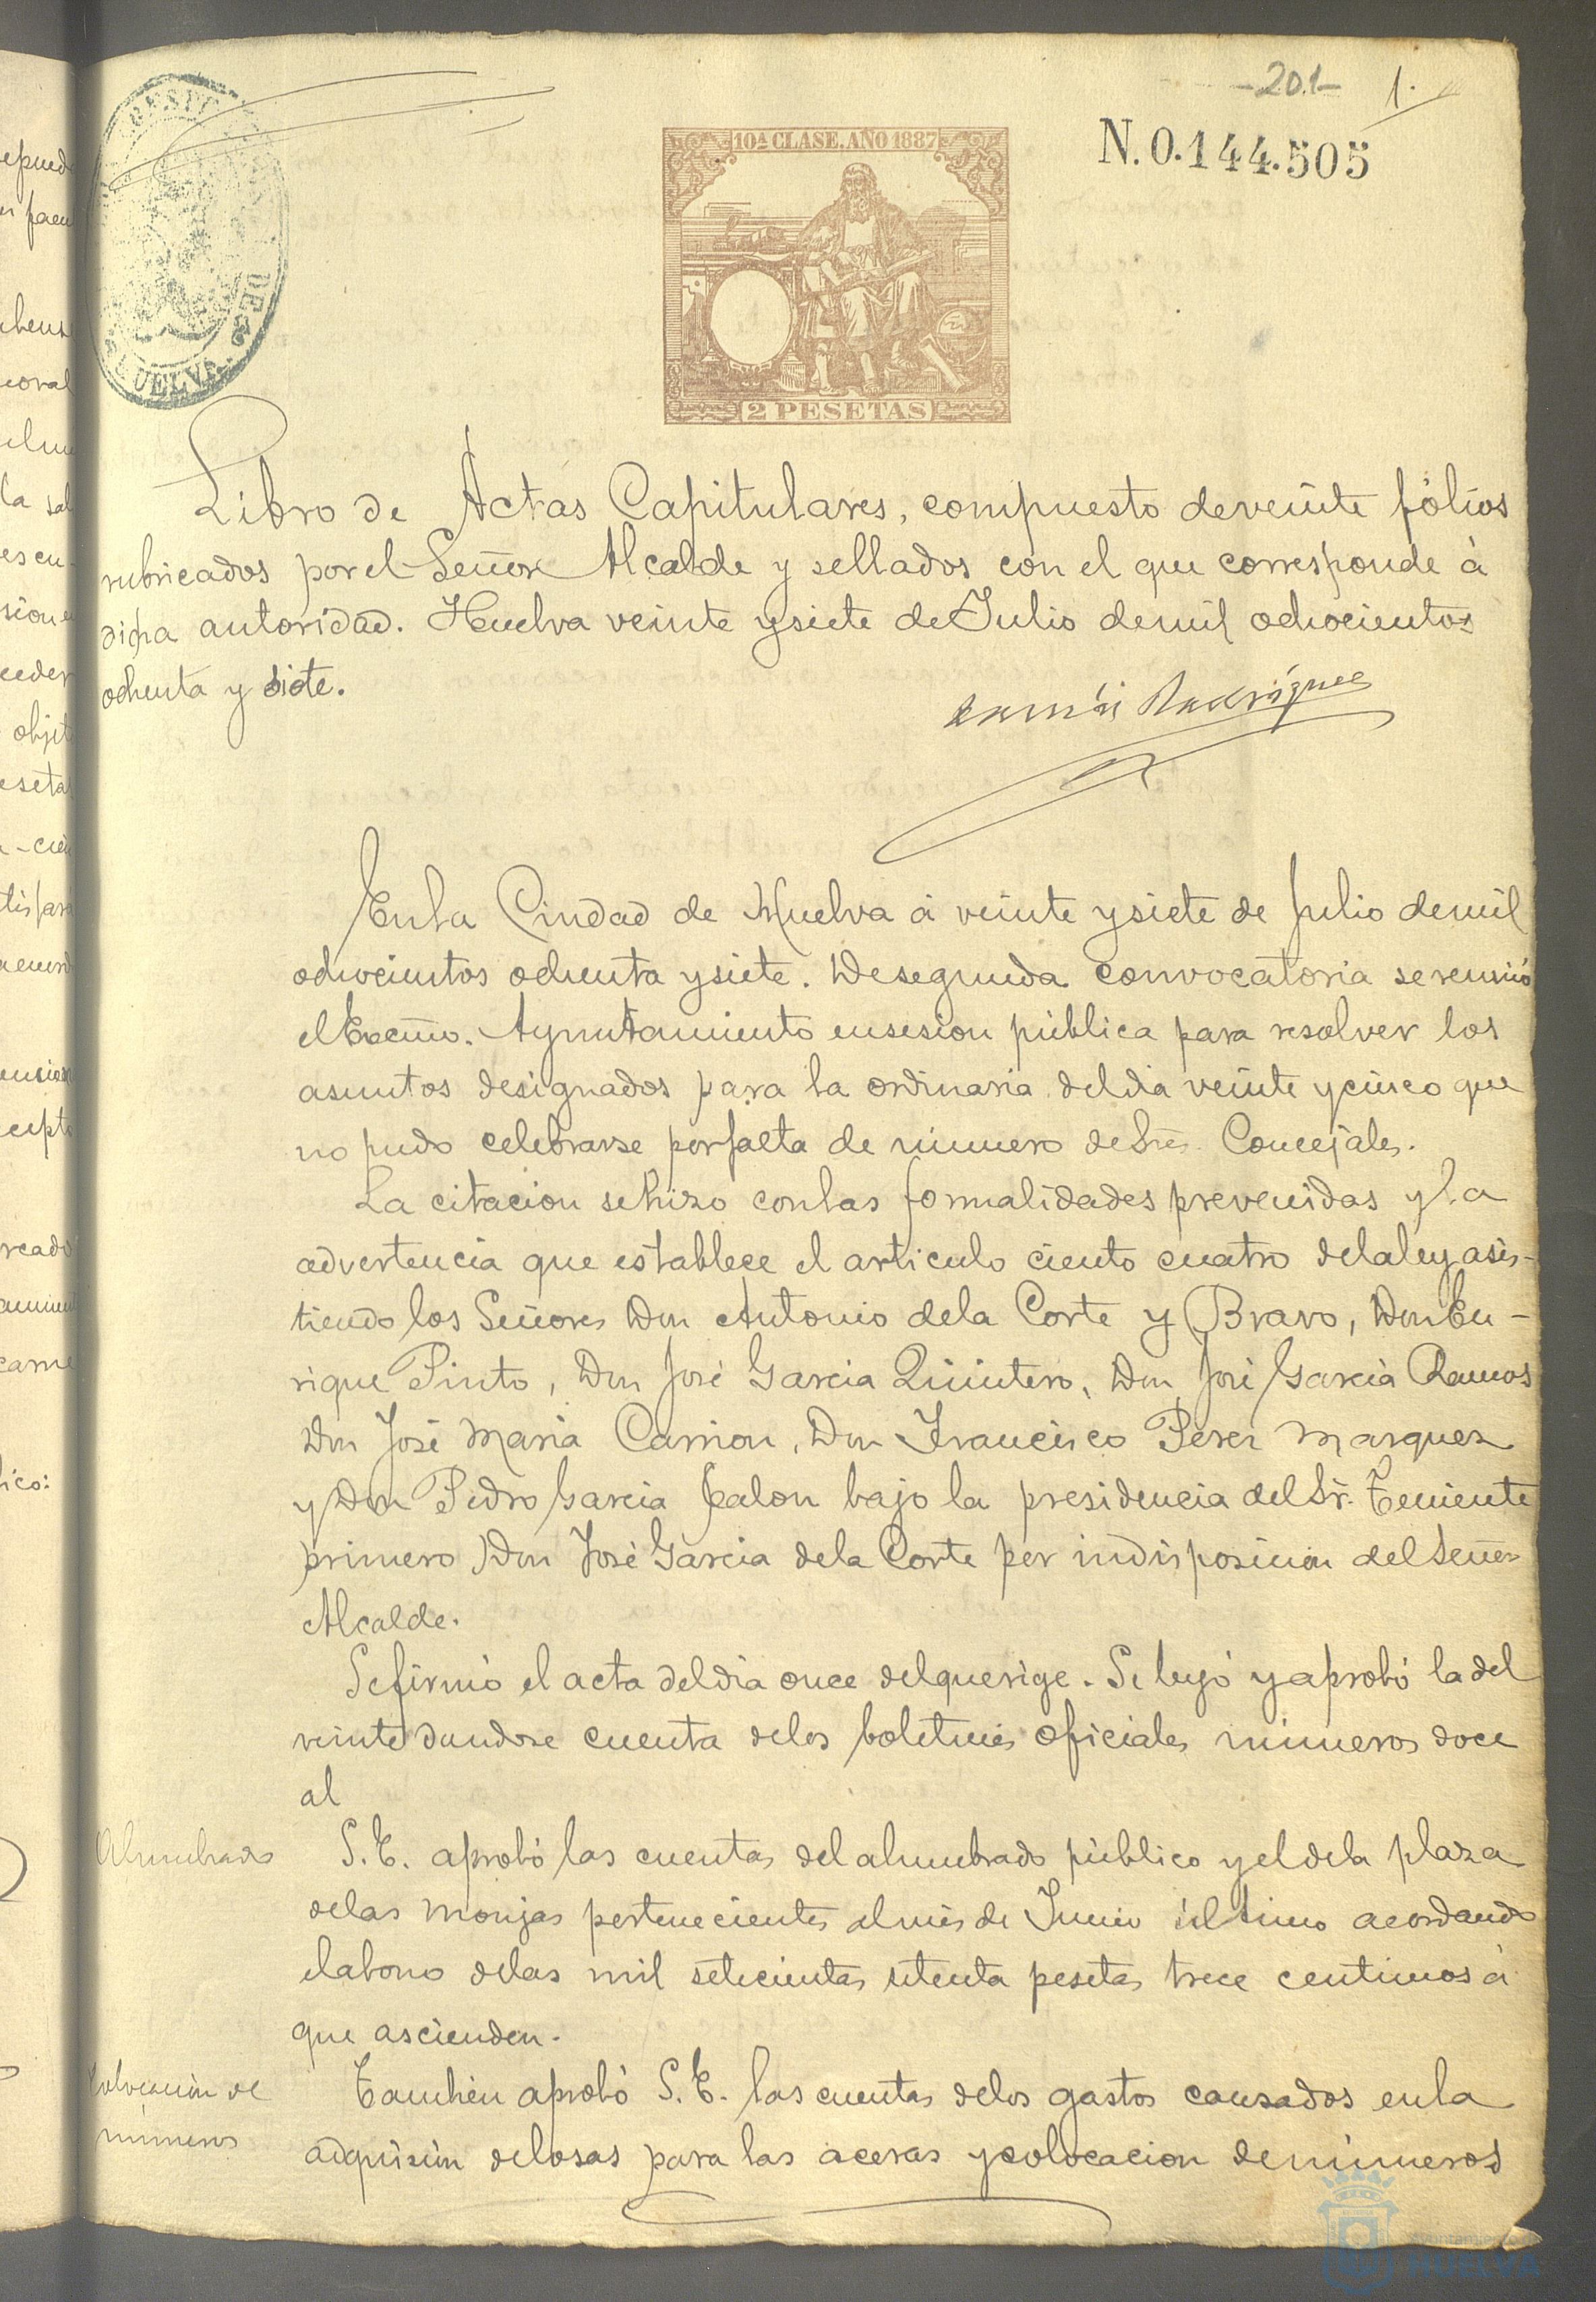 -201- 1.
N.0.144.505
10ª CLASE. AÑO 1887
2 PESETAS
DE
HUELVA
Libro de Actas Capitulares, compuesto de veinte fólios
rubricados por el Señor Alcalde y sellados con el que corresponde á
dicha autoridad. Huelva veinte y siete de Julio de mil ochocientos
ochenta y siete.
Rodriguez
En la Ciudad de Huelva á veinte y siete de Julio de mil
ochocientos ochenta y siete. De segunda convocatoria se reunió
el Excmo. Ayuntamiento en sesion pública para resolver los
asuntos designados para la ordinaria del dia veinte y cinco que
no pudo celebrarse por falta de número de Sres. Concejales.
La citacion se hizo con las formalidades prevenidas y la
advertencia que establece el articulo ciento cuatro de la ley asis-
tiendo los Señores Don Antonio de la Corte y Bravo, Don En-
rique Pinto, Don José Garcia Quintero, Don José Garcia Ramos
Don José Maria Carrion, Don Francisco Perez Marquez
y Don Pedro Garcia Jalon bajo la presidencia del Sr. Teniente
primero Don José Garcia de la Corte por indisposicion del Señor
Alcalde.
Se firmó el acta del dia once del que rige. Se leyó y aprobó la del
veinte dandose cuenta de los boletines oficiales números doce
al
Alumbrado
S.E. aprobó las cuentas del alumbrado público y el de la plaza
de las Monjas pertenecientes al mes de Junio último acordando
el abono de las mil setecientas setenta pesetas trece centimos á
que ascienden.
Colocación de
números
Tambien aprobó S.E. las cuentas de los gastos causados en la
adquisión de losas para las aceras y colocacion de números
Ayuntamiento de
HUELVA